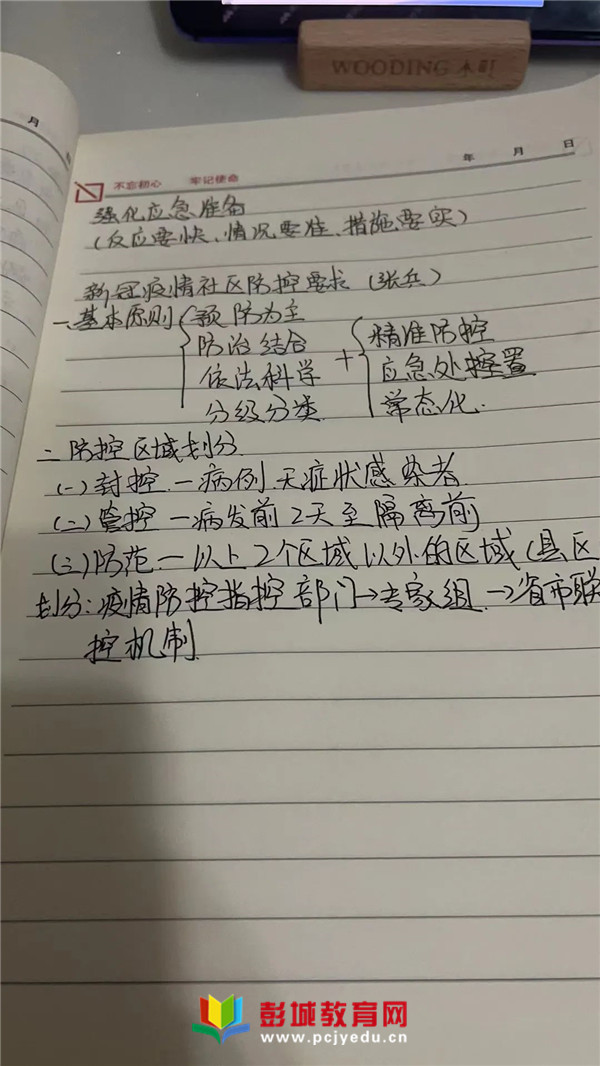 WOODING 木町
月
年 月 日
不忘初心 牢记使命
强化应急准备
(反应要快、情况要准、措施要实)
新冠疫情社区防控要求 (张兵)
一、基本原则 { 预防为主
防治结合
依法科学
分级分类
+ { 精准防控
应急处置
常态化
二、防控区域划分
(一)封控 — 病例 无症状感染者
(二)管控 — 病发前2天至隔离前
(三)防范 — 以上2个区域以外的区域(县区
划分:疫情防控指控部门→专家组→省市联
控机制
彭城教育网
www.pcjyedu.cn